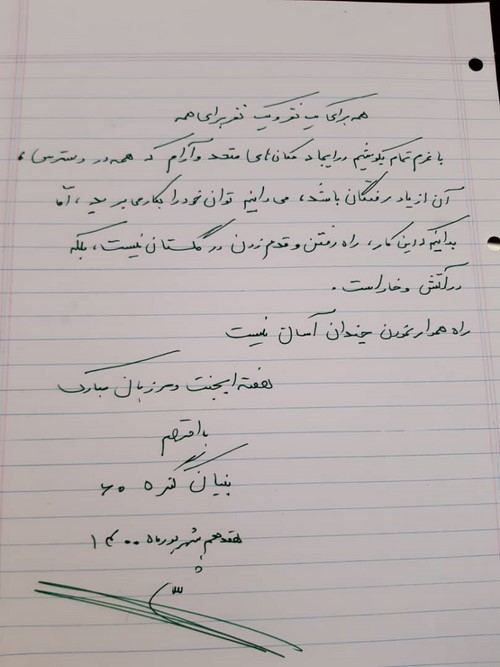 همه برای یک نفر و یک نفر برای همه
با عزم تمام بکوشیم در ایجاد مکان‌های متعدد و آرام که همه در دسترس،
آن از یاد رفتگان باشد، می‌دانیم توان خود را بکار می‌برید، اما
بدانیم در این کار، راه رفتن و قدم زدن در گلستان نیست، بلکه
در آتش و خار است.
راه هموار نمودن چندان آسان نیست
هفته ایجنت و مرزبان مبارک
با احترام
بنیان کنگره ۶۰
هفدهم شهریورماه ۱۴۰۰